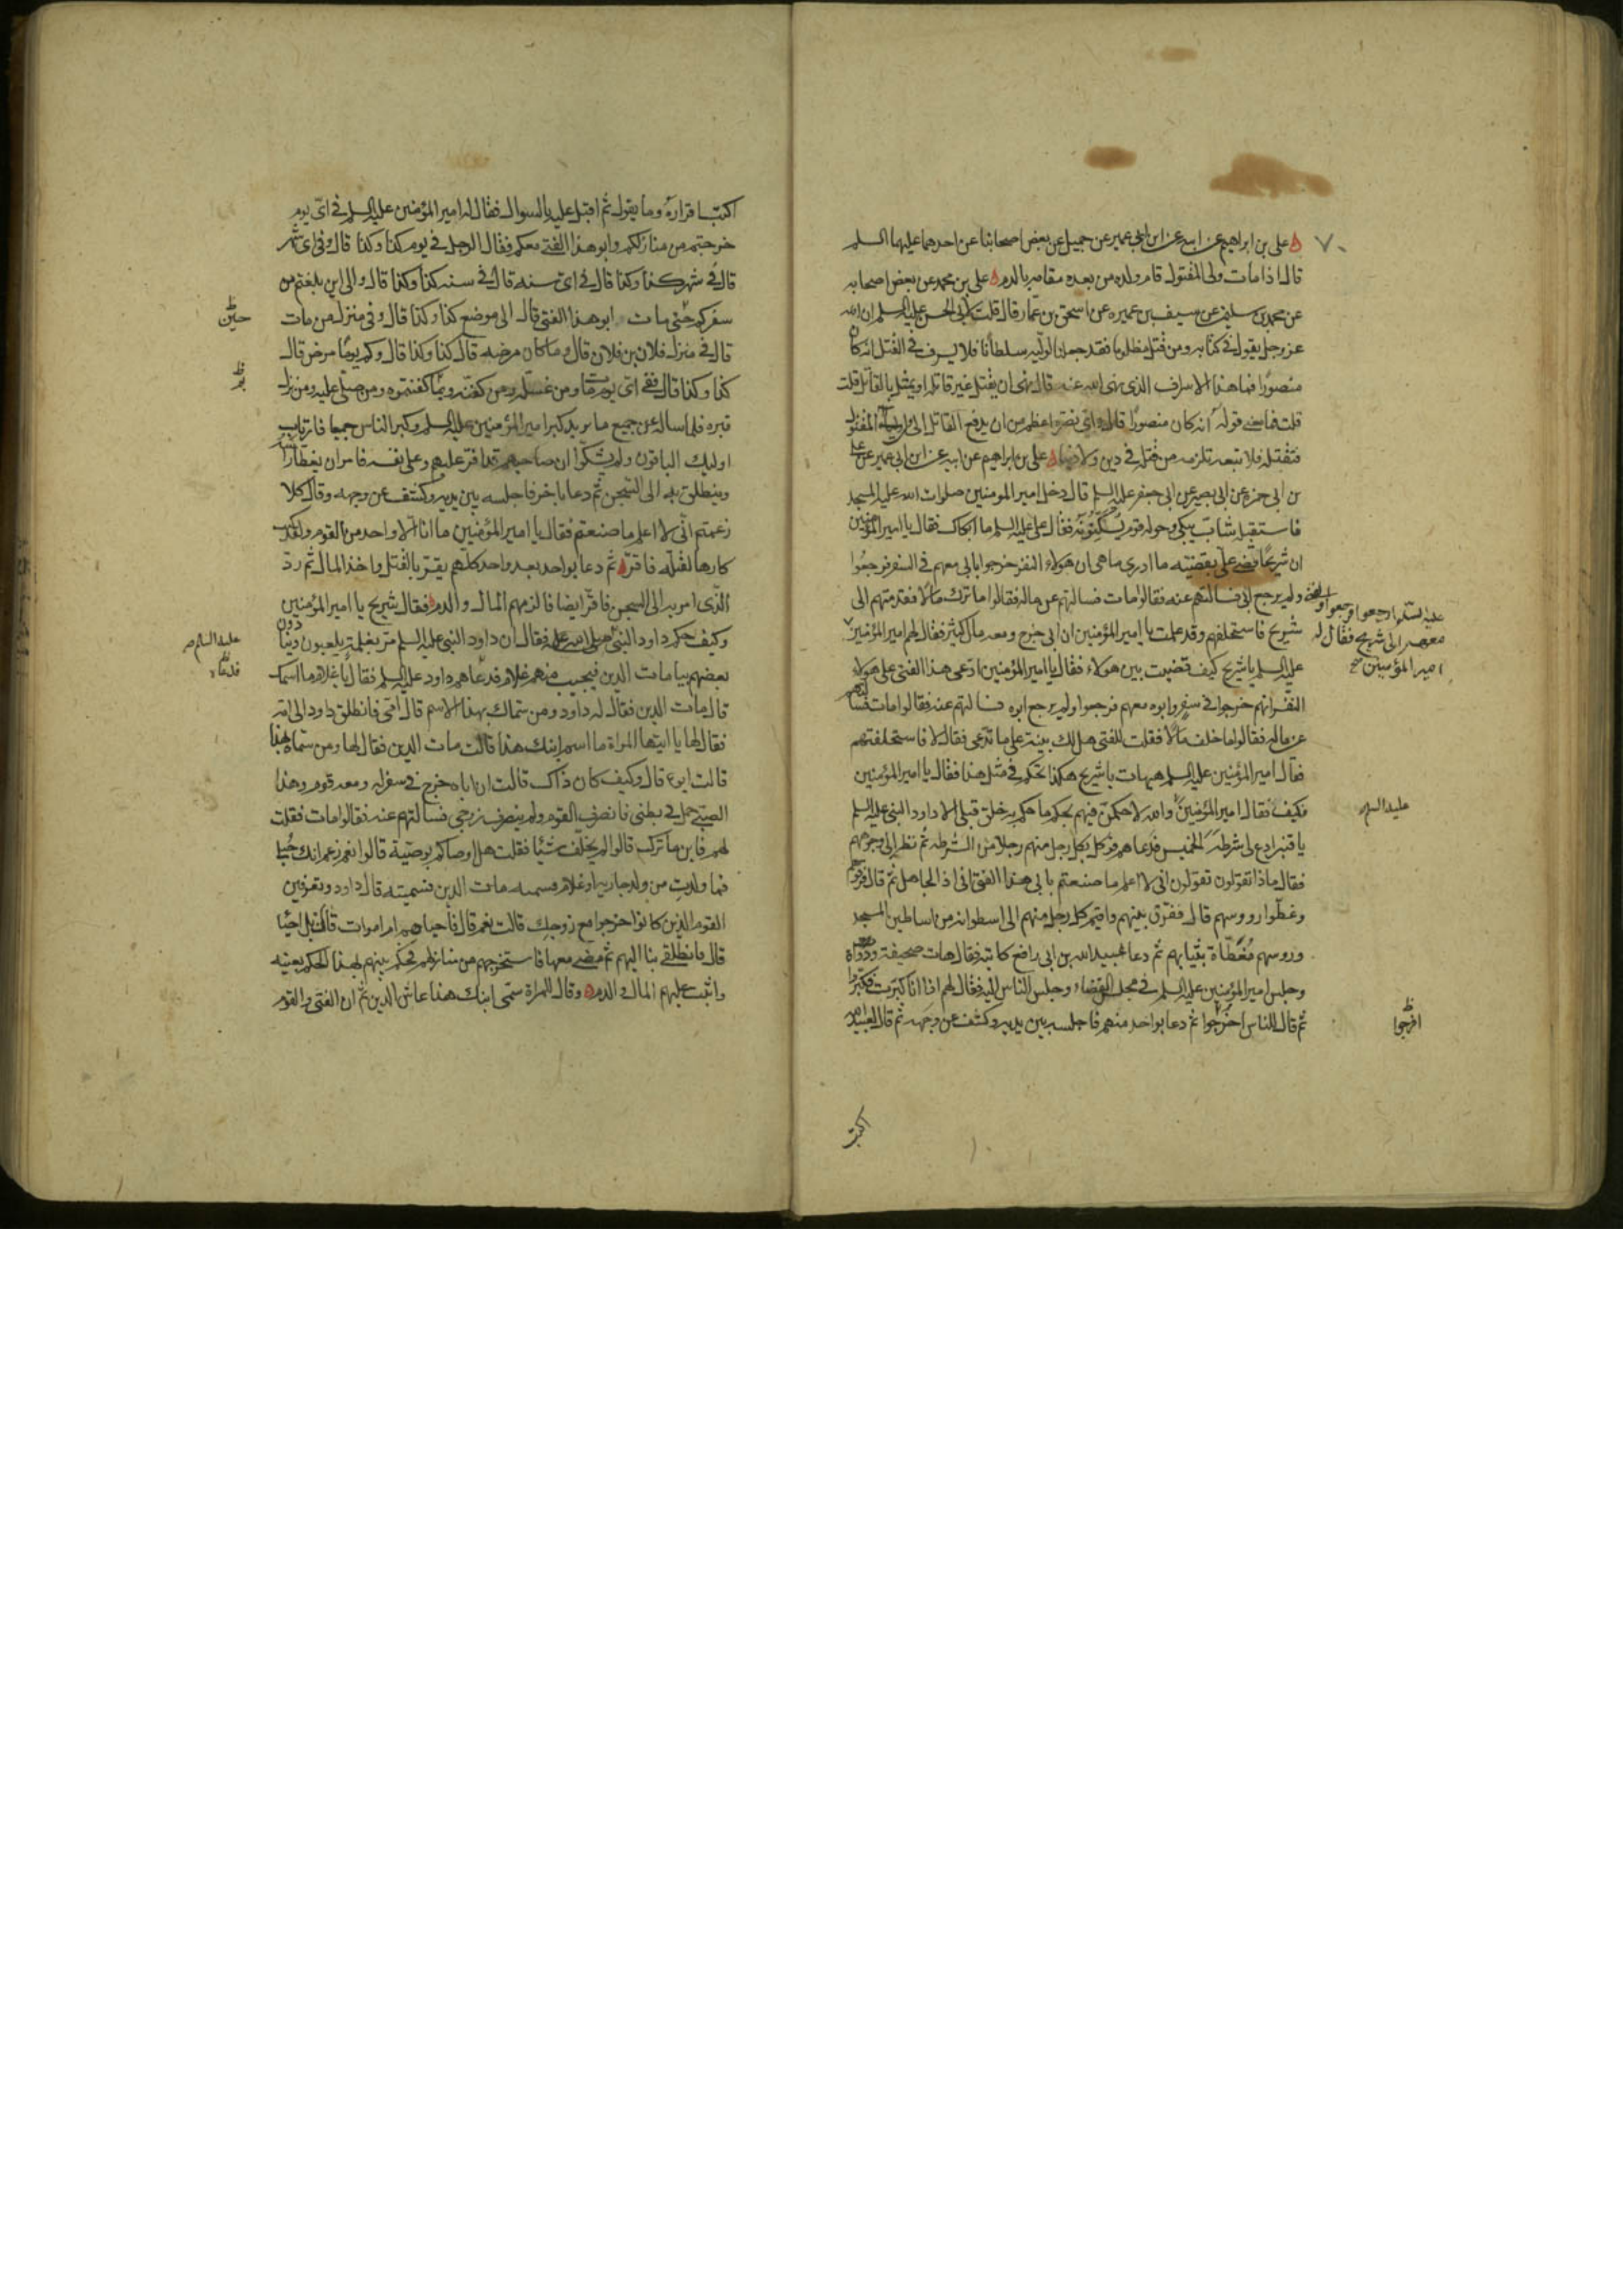 علي بن ابراهيم عن ابيه عن ابن ابي عمير عن جميل عن بعض اصحابنا عن احدهما عليهما السلم
قال اذا مات ولي المقتول قام ولده من بعده مقامه بالدم علي بن محمد عن بعض اصحابه
عن محمد بن سليمن عن سيف بن عميره عن اسحق بن عمار قال قلت لابي الحسن عليه السلم ان الله
عز وجل يقول في كتابه ومن قتل مظلوما فقد جعلنا لوليه سلطانا فلا يسرف في القتل انه كان
منصورا فما هذا الاسراف الذي نهى الله عنه قال نهى ان يقتل غير قاتله او يمثل بالقاتل قلت
قلت فما معنى قوله انه كان منصورا قال واي نصرة اعظم من ان يدفع القاتل الى اولياء المقتول
فتقتله فلا تبعه تلزمه من قتله في دين ولا دنيا علي بن ابراهيم عن ابيه عن ابن ابي عمير عن علي
بن ابي حمزه عن ابي بصير عن ابي جعفر عليه السلم قال دخل امير المومنين صلوات الله عليه المسجد
فاستقبله شاب يبكي وحوله قوم يسكتونه فقال علي عليه السلم ما ابكاك فقال يا امير المؤمنين
ان شريحا قضى علي بقضيته ما ادري ما هي ان هولاء النفر خرجوا بابي معهم في السفر فرجعوا
ولم يرجع ابي فسالتهم عنه فقالوا مات فسالتهم عن ماله فقالوا ما ترك مالا فقدمتهم الى
شريح فاستحلفهم وقد علمت يا امير المؤمنين ان ابي خرج ومعه مال كثير فقال لهم امير المؤمنين
عليه السلم ارجعوا فرجعوا و
معهم الى شريح فقال له
امير المؤمنين صح
عليه السلم يا شريح كيف قضيت بين هولاء فقال يا امير المؤمنين ادعى هذا الفتى على هولاء
النفر انهم خرجوا في سفر وابوه معهم فرجعوا ولم يرجع ابوه فسالتهم عنه فقالوا مات فسالتهم
عن ماله فقالوا ما خلف مالا فقلت للفتى هل لك بينة على ما تدعي فقال لا فاستحلفتهم
فقال امير المؤمنين عليه السلم هيهات يا شريح هكذا تحكم في مثل هذا فقال يا امير المؤمنين
فكيف فقال امير المؤمنين والله لاحكمن فيهم بحكم ما حكم به خلق قبلي الا داود النبي عليه السلم
عليه السلم
يا قنبر ادع لي شرطة الخميس فدعاهم فوكل بكل رجل منهم رجلا من الشرطه ثم نظر الى وجوههم
فقال ماذا تقولون تقولون اني لا اعلم ما صنعتم بابي هذا الفتى اني اذا لجاهل ثم قال فرقوهم
وغطوا رووسهم قال ففرق بينهم واقيم كل رجل منهم الى اسطوانه من اساطين المسجد
ورووسهم مغطاة بثيابهم ثم دعا بعبيد الله بن ابي رافع كاتبه فقال هات صحيفة ودواة
وجلس امير المؤمنين عليه السلم في مجلس القضاء وجلس الناس اليه فقال لهم اذا انا كبرت فكبروا
ثم قال للناس اخرجوا ثم دعا بواحد منهم فاجلسه بين يديه وكشف عن وجهه ثم قال لعبيد الله
افرجوا
اكتب
اكتب اقراره وما يقول ثم اقبل عليه بالسوال فقال له امير المؤمنين عليه السلم في اي يوم
خرجتم من منازلكم وابو هذا الفتى معكم فقال الرجل في يوم كذا وكذا قال وفي اي شهر
قال في شهر كذا وكذا قال في اي سنه قال في سنه كذا وكذا قال والى اين بلغتم من
سفركم حتى مات ابو هذا الفتى قال الى موضع كذا وكذا قال وفي منزل من مات
حين
قال في منزل فلان بن فلان قال وما كان مرضه قال كذا وكذا قال وكم يوما مرض قال
كذا وكذا قال ففي اي يوم مات ومن غسله ومن كفنه وبما كفنتموه ومن صلى عليه ومن نزل
قبره فلما ساله عن جميع ما يريد كبر امير المؤمنين عليه السلم وكبر الناس جميعا فارتاب
اوليك الباقون ولم يشكوا ان صاحبهم قد اقر عليهم وعلى نفسه فامر ان يغطى راسه
وينطلق به الى السجن ثم دعا باخر فاجلسه بين يديه وكشف عن وجهه وقال كلا
زعمتم اني لا اعلم ما صنعتم فقال يا امير المؤمنين ما انا الا واحد من القوم ولقد كنت
كارها لقتله فاقر ثم دعا بواحد بعد واحد كلهم يقر بالقتل واخذ المال ثم رد
الذي امر به الى السجن فاقر ايضا فالزمهم المال والدم فقال شريح يا امير المؤمنين
وكيف حكم داود النبي صلى الله عليه فقال ان داود النبي عليه السلم مر بغلمة يلعبون وينادون
عليه السلام
بعضهم بيا مات الدين فيجيب منهم غلام فدعاهم داود عليه السلم فقال يا غلام ما اسمك
قال مات الدين فقال له داود ومن سماك بهذا الاسم قال امي فانطلق داود الى امه
فقال لها يا ايتها المراة ما اسم ابنك هذا قالت مات الدين فقال لها ومن سماه بهذا
قالت ابوه قال وكيف كان ذاك قالت ان اباه خرج في سفر له ومعه قوم وهذا
الصبي حمل في بطني فانصرف القوم ولم ينصرف زوجي فسالتهم عنه فقالوا مات فقلت
لهم فاين ما ترك قالوا لم يخلف شيئا فقلت هل اوصاكم بوصية قالوا نعم زعم انك حبلى
فما ولدت من ولد جاريه او غلام فسميه مات الدين فسميته قال داود وتعرفين
القوم الذين كانوا خرجوا مع زوجك قالت نعم قال فاحياء هم ام اموات قالت بل احياء
قال فانطلقي بنا اليهم ثم مضى معها فاستخرجهم من منازلهم فحكم بينهم بهذا الحكم بعينه
واثبت عليهم المال والدم وقال للمراة سمي ابنك هذا عاش الدين ثم ان الفتى والقوم